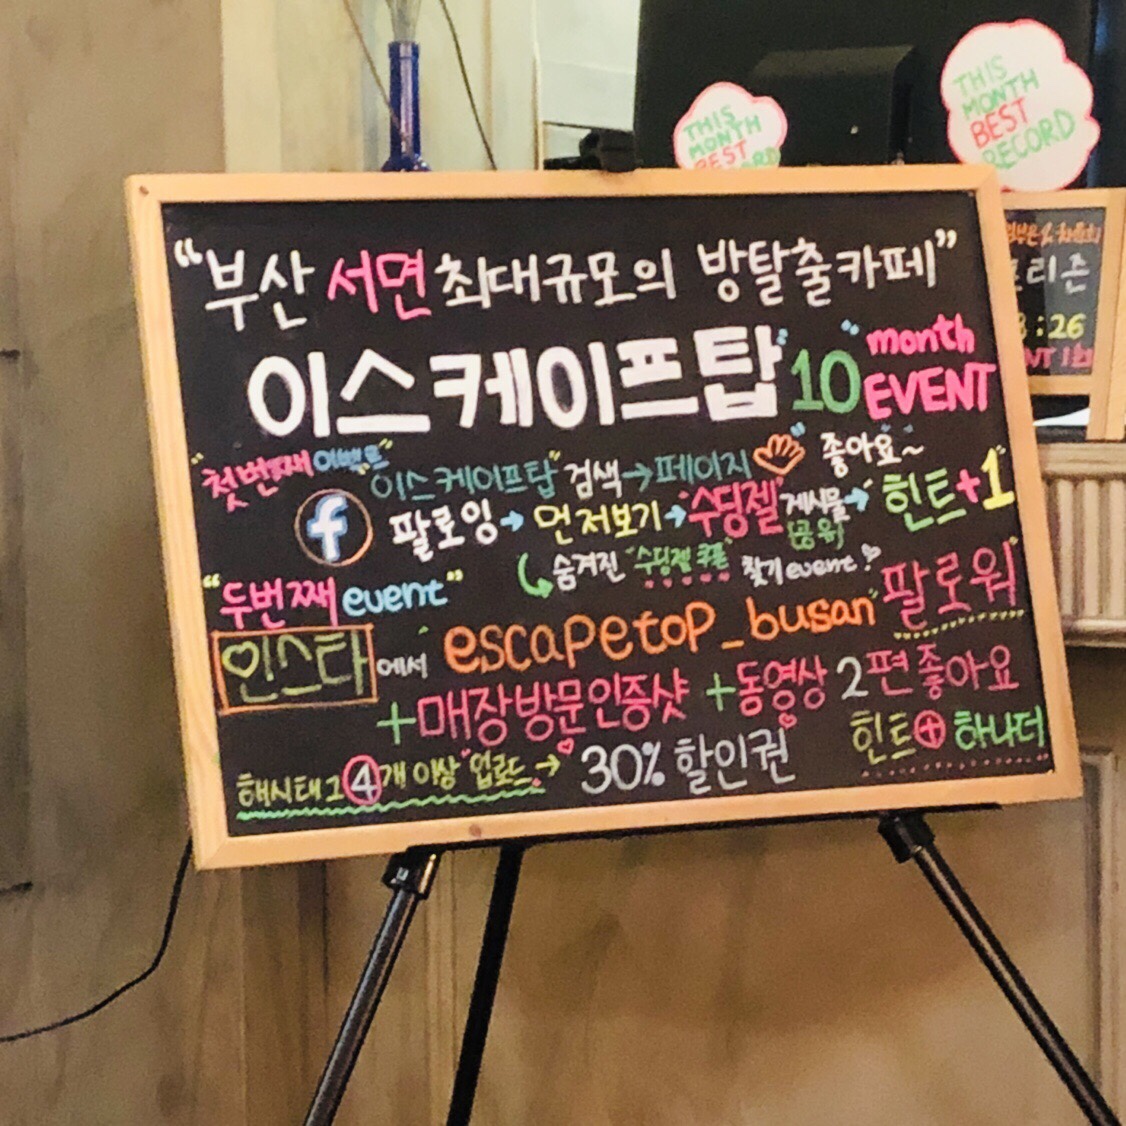 THIS
MONTH
BEST
RECORD
THIS
MONTH
BEST
RECORD
"부산 서면 최대규모의 방탈출카페"
이스케이프탑 "10" month
EVENT
"첫번째 이벤트"
"이스케이프탑" 검색→페이지 좋아요~
f 팔로잉→먼저보기→"수딩젤" 게시물→ 힌트+1
(공유)
숨겨진 "수딩젤 쿠폰" 찾기 event!
"두번째 event"
인스타 에서 "escapetop_busan" 팔로워
+매장방문인증샷 +동영상 2편 좋아요
해시태그 4개 이상 "업로드" → 30% 할인권 힌트+ 하나더
프리즌
:26